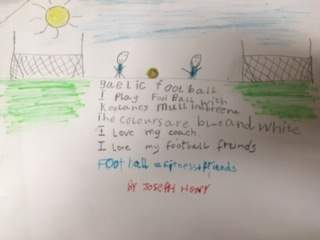 gaelic football
I Play FooTBall with
The Colours are blue and white
I Love my coach
I Love my football friends
FOOtball = fitness + friends
BY JOSEPH